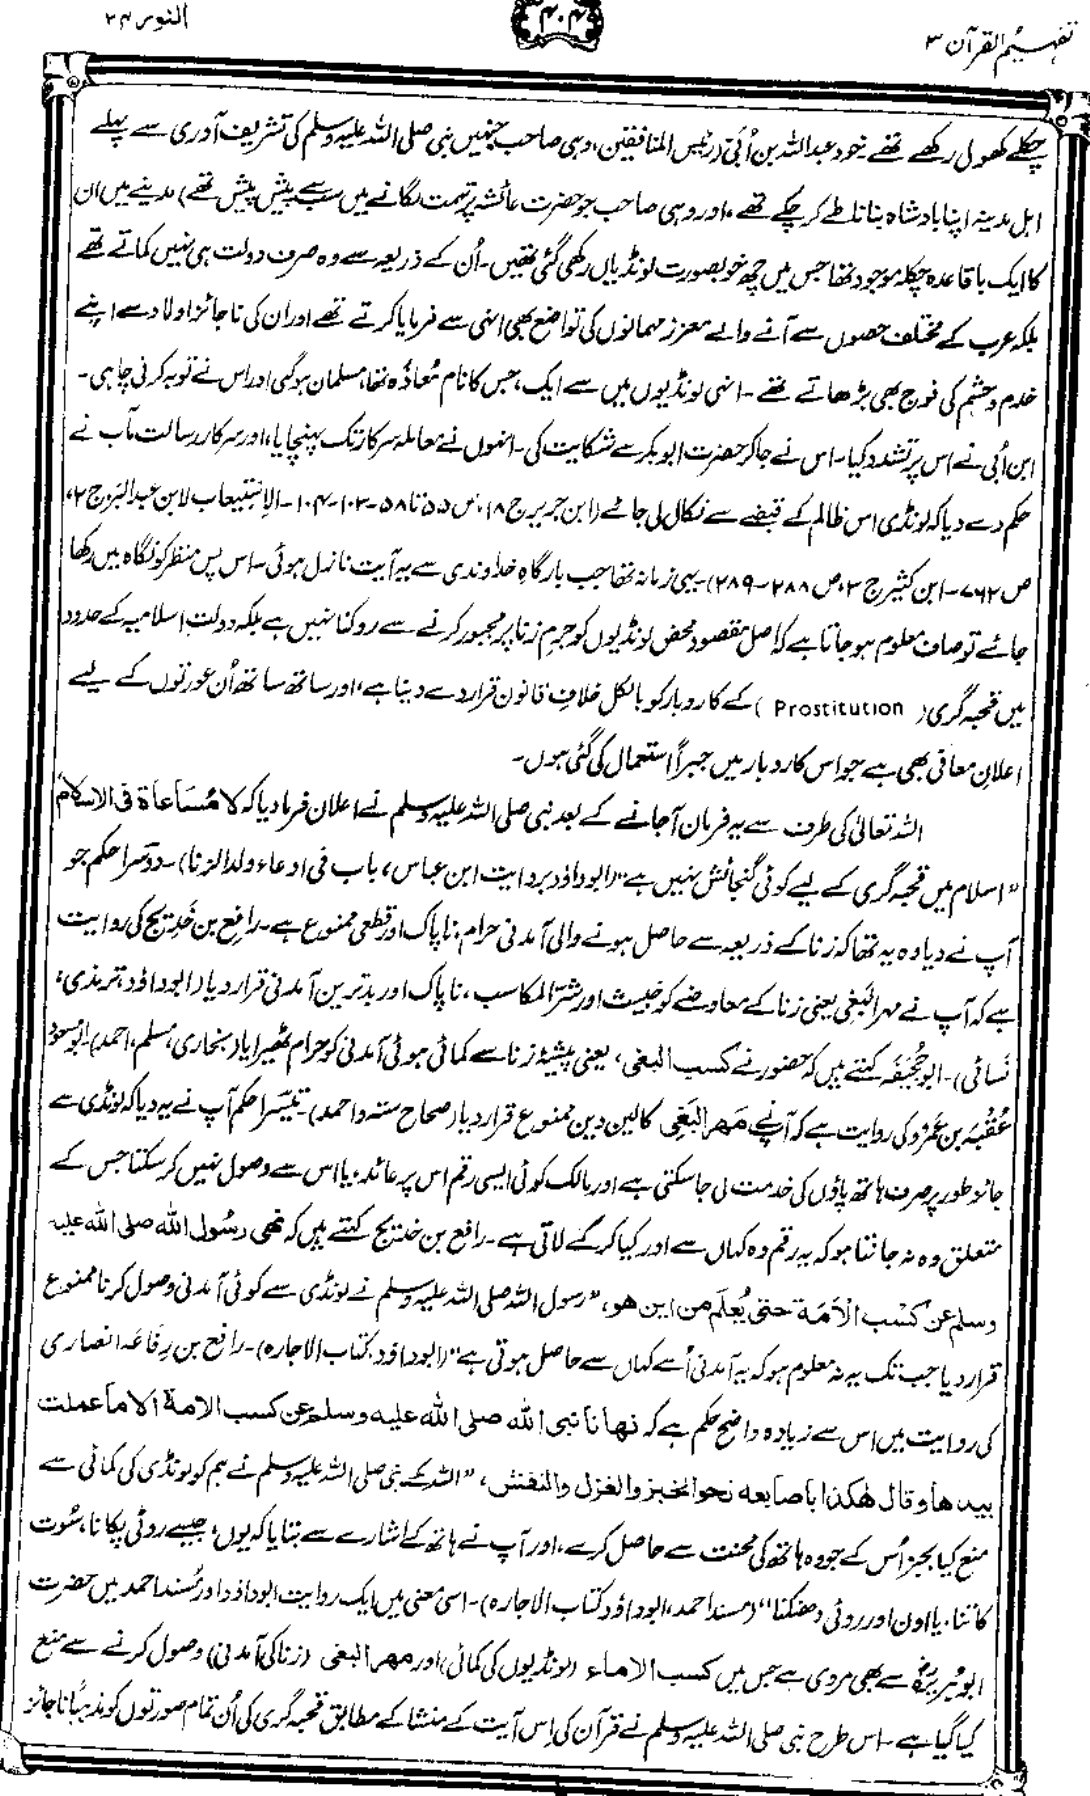 تفہیم القرآن ۳
۴۰۴
النور ۲۴
چکلے کھول رکھے تھے۔ خود عبداللہ بن اُبَیّ (رئیس المنافقین، وہی صاحب جنہیں نبی صلی اللہ علیہ وسلم کی تشریف آوری سے پہلے
اہل مدینہ اپنا بادشاہ بنانا طے کر چکے تھے، اور وہی صاحب جو حضرت عائشہ پر تہمت لگانے میں سب سے پیش پیش تھے) مدینے میں ان
کا ایک باقاعدہ چکلہ موجود تھا جس میں چھ خوبصورت لونڈیاں رکھی گئی تھیں۔ اُن کے ذریعہ سے وہ صرف دولت ہی نہیں کماتے تھے
بلکہ عرب کے مختلف حصوں سے آنے والے معزز مہمانوں کی تواضع بھی انہی سے فرمایا کرتے تھے اور ان کی ناجائز اولاد سے اپنے
خدم و حشم کی فوج بھی بڑھاتے تھے۔ انہی لونڈیوں میں سے ایک، جس کا نام مُعاذَہ تھا، مسلمان ہو گئی اور اس نے توبہ کرنی چاہی۔
ابن اُبَی نے اس پر تشدد کیا۔ اس نے جا کر حضرت ابوبکر سے شکایت کی۔ انہوں نے معاملہ سرکار تک پہنچایا، اور سرکار رسالت مآب نے
حکم دے دیا کہ لونڈی اس ظالم کے قبضے سے نکال لی جائے (ابن جریر ج ۱۸، ص ۵۵ تا ۵۸۔۱۰۳۔۱۰۴۔ الاستیعاب لابن عبدالبر ج ۲،
ص ۷۶۲۔ ابن کثیر ج ۳، ص ۲۸۸۔۲۸۹)۔ یہی زمانہ تھا جب بارگاہِ خداوندی سے یہ آیت نازل ہوئی۔ اس پس منظر کو نگاہ میں رکھا
جائے تو صاف معلوم ہو جاتا ہے کہ اصل مقصود محض لونڈیوں کو جرم زنا پر مجبور کرنے سے روکنا نہیں ہے بلکہ دولتِ اسلامیہ کے حدود
میں قحبہ گری (Prostitution) کے کاروبار کو بالکل خلافِ قانون قرار دے دینا ہے، اور ساتھ ساتھ اُن عورتوں کے لیے
اعلانِ معافی بھی ہے جو اس کاروبار میں جبراً استعمال کی گئی ہوں۔
اللہ تعالیٰ کی طرف سے یہ فرمان آجانے کے بعد نبی صلی اللہ علیہ وسلم نے اعلان فرما دیا کہ لا مُسَاعاۃ فی الاسلام
”اسلام میں قحبہ گری کے لیے کوئی گنجائش نہیں ہے“ (ابوداؤد بروایت ابن عباس، باب فی ادعاء ولد الزنا)۔ دوسرا حکم جو
آپ نے دیا وہ یہ تھا کہ زنا کے ذریعہ سے حاصل ہونے والی آمدنی حرام، ناپاک اور قطعی ممنوع ہے۔ رافع بن خَدِیج کی روایت
ہے کہ آپ نے مہر البَغِی یعنی زنا کے معاوضے کو خبیث اور شرّ المکاسب، ناپاک اور بدترین آمدنی قرار دیا (ابوداؤد، ترمذی،
نَسائی)۔ ابو جُحَیفَہ کہتے ہیں کہ حضور نے کسب البغی، یعنی پیشۂ زنا سے کمائی ہوئی آمدنی کو حرام ٹھیرایا (بخاری، مسلم، احمد)۔ ابو مسعود
عُقْبہ بن عَمْرو کی روایت ہے کہ آپ نے مَھر البَغِی کا لین دین ممنوع قرار دیا (صحاح ستہ و احمد)۔ تیسرا حکم آپ نے یہ دیا کہ لونڈی سے
جائز طور پر صرف ہاتھ پاؤں کی خدمت لی جا سکتی ہے اور مالک کوئی ایسی رقم اس پر عائد، یا اس سے وصول نہیں کر سکتا جس کے
متعلق وہ نہ جانتا ہو کہ یہ رقم وہ کہاں سے اور کیا کر کے لاتی ہے۔ رافع بن خدیج کہتے ہیں کہ نھی رسُول اللہ صلی اللہ علیہ
وسلم عن کَسْب الْاَمَۃ حتیٰ یُعلَم من این ھو، ”رسول اللہ صلی اللہ علیہ وسلم نے لونڈی سے کوئی آمدنی وصول کرنا ممنوع
قرار دیا جب تک یہ نہ معلوم ہو کہ یہ آمدنی اُسے کہاں سے حاصل ہوتی ہے“ (ابوداؤد، کتاب الاجارہ)۔ رافع بن رِفَاعَہ انصاری
کی روایت میں اس سے زیادہ واضح حکم ہے کہ نھانا نبی اللہ صلی اللہ علیہ وسلم عن کسب الامۃ الا ما عملت
بیدھا و قال ھکذا باصابعہ نحو الخبز والغزل والنفش، ”اللہ کے نبی صلی اللہ علیہ وسلم نے ہم کو لونڈی کی کمائی سے
منع کیا بجز اُس کے جو وہ ہاتھ کی محنت سے حاصل کرے، اور آپ نے ہاتھ کے اشارے سے بتایا کہ یوں، جیسے روٹی پکانا، سُوت
کاتنا، یا اون اور روئی دھنکنا“ (مسند احمد، ابوداؤد کتاب الاجارہ)۔ اسی معنی میں ایک روایت ابوداؤد اور مُسند احمد میں حضرت
ابوہریرہؓ سے بھی مروی ہے جس میں کسب الاماء (لونڈیوں کی کمائی) اور مھر البغی (زنا کی آمدنی) وصول کرنے سے منع
کیا گیا ہے۔ اس طرح نبی صلی اللہ علیہ وسلم نے قرآن کی اِس آیت کے منشا کے مطابق قحبہ گری کی اُن تمام صورتوں کو مذہباً ناجائز